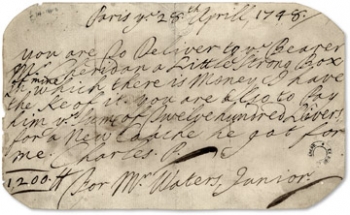 Paris ye 28th Aprill, 1748.
you are to Deliver to ye Bearer
Mr Sheridan a Little Strong Box
of mine
in which there is Money, I have
the Ke of it. You are also to Pay
him ye Sume of Twelve hundred Livers
for a New Cache he got for
me. Charles. P.
1200 ₶
For Mr Waters, Junior.